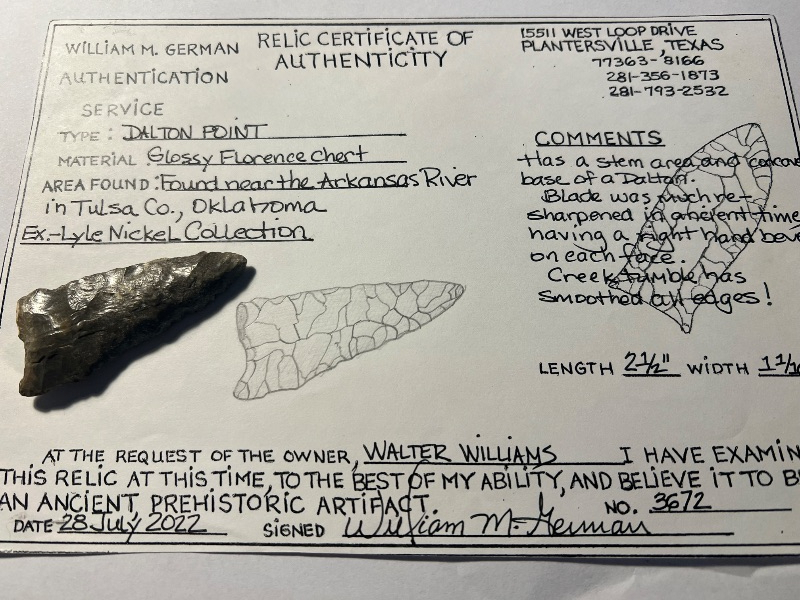 WILLIAM M. GERMAN
AUTHENTICATION
SERVICE
RELIC CERTIFICATE OF
AUTHENTICITY
15511 WEST LOOP DRIVE
PLANTERSVILLE, TEXAS
77363-8166
281-356-1873
281-793-2532
TYPE: DALTON POINT
MATERIAL Glossy Florence Chert
AREA FOUND: Found near the Arkansas River
in Tulsa Co., Oklahoma
Ex.-Lyle Nickel Collection
COMMENTS
Has a stem area and concave
base of a Dalton.
Blade was much re-
sharpened in ancient time
having a right hand beve
on each face.
Creek tumble has
smoothed all edges!
LENGTH 2 1/2" WIDTH
AT THE REQUEST OF THE OWNER, WALTER WILLIAMS I HAVE EXAMIN
THIS RELIC AT THIS TIME, TO THE BEST OF MY ABILITY, AND BELIEVE IT TO B
AN ANCIENT PREHISTORIC ARTIFACT.
NO. 3672
DATE 28 July 2022 SIGNED William M. German